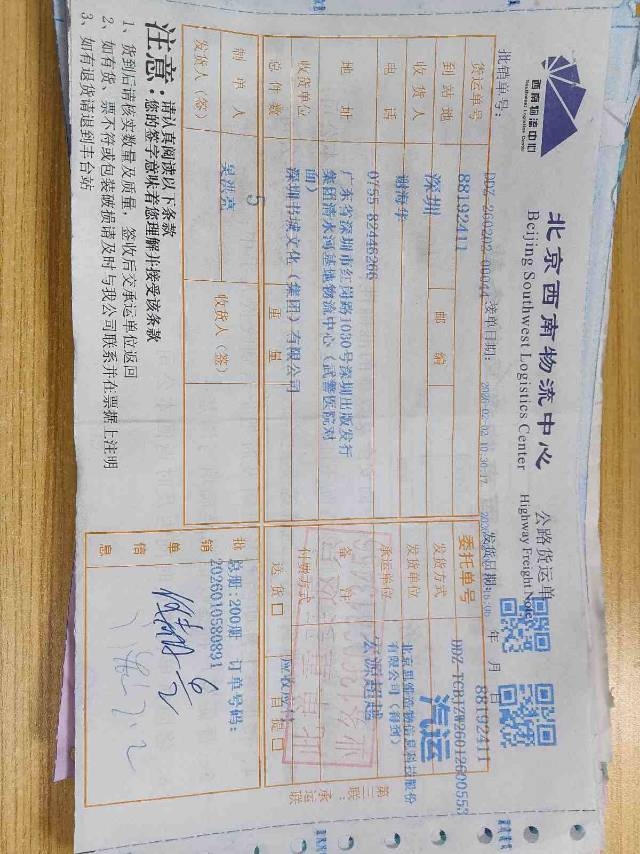 西南物流中心
Southwest Logistics Center
北京西南物流中心 公路货运单
Beijing Southwest Logistics Center Highway Freight Note
批销单号: DDZ-260202-00044 接单日期: 2026-02-02 10:30:17 发货日期: 年 月 日
货运单号 88192411 委托单号 88192411
DDZ-TGHJZW26012600553
到站地 深圳 邮编 发货方式 汽运
收货人 谢海华 发货单位 有限公司(得到)
电话 0755-82446266 承运单位 宏源超越
地址 广东省深圳市红岗路1030号深圳出版发行
集团清水河基地物流中心(武警医院对
面) 备注
收货单位 深圳书城文化(集团)有限公司 付缴方式 应收应付
总件数 5 重量 送货□ 自提□
制单人 吴洪亮
发货人(签) 收货人(签)
批销单信息
总册:200册 订单号码:
2026010580891
6
第三联:承运联
注意:
请认真阅读以下条款
您的签字意味者您理解并接受该条款
1、货到后请核实数量及质量,签收后交承运单位返回
2、如有货、票不符或包装破损请及时与我公司联系并在票据上注明
3、如有退货请退到丰台站